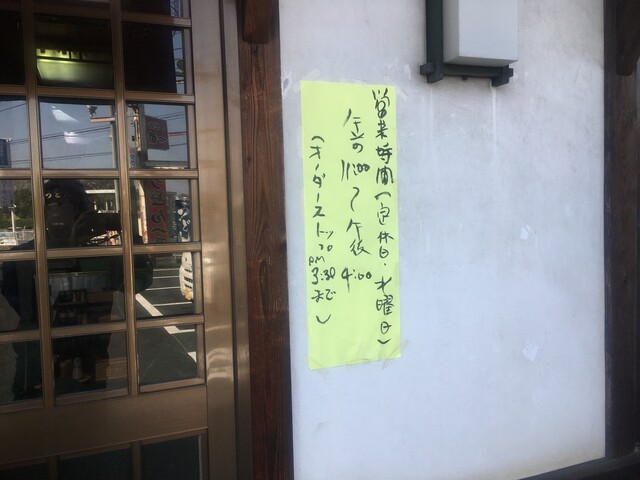 営業時間(定休日・水曜日)
11:00〜午後4:00
(オーダーストップ
PM
3:30
まで)